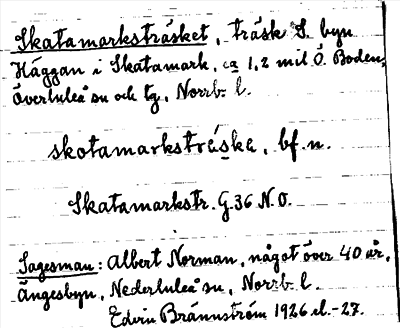 Skatamarksträsket, träsk S. byn
Häggan i Skatamark, ca 1,2 mil Ö. Boden,
Överluleå sn och tg, Norrb. l.
skotamarkstræske, bf. n.
Skatamarkstr. G.36 N.O.
Sagesman: Albert Norman, något över 40 år,
Ängesbyn, Nederluleå sn, Norrb. l.
Edvin Brännström 1926 el. -27.